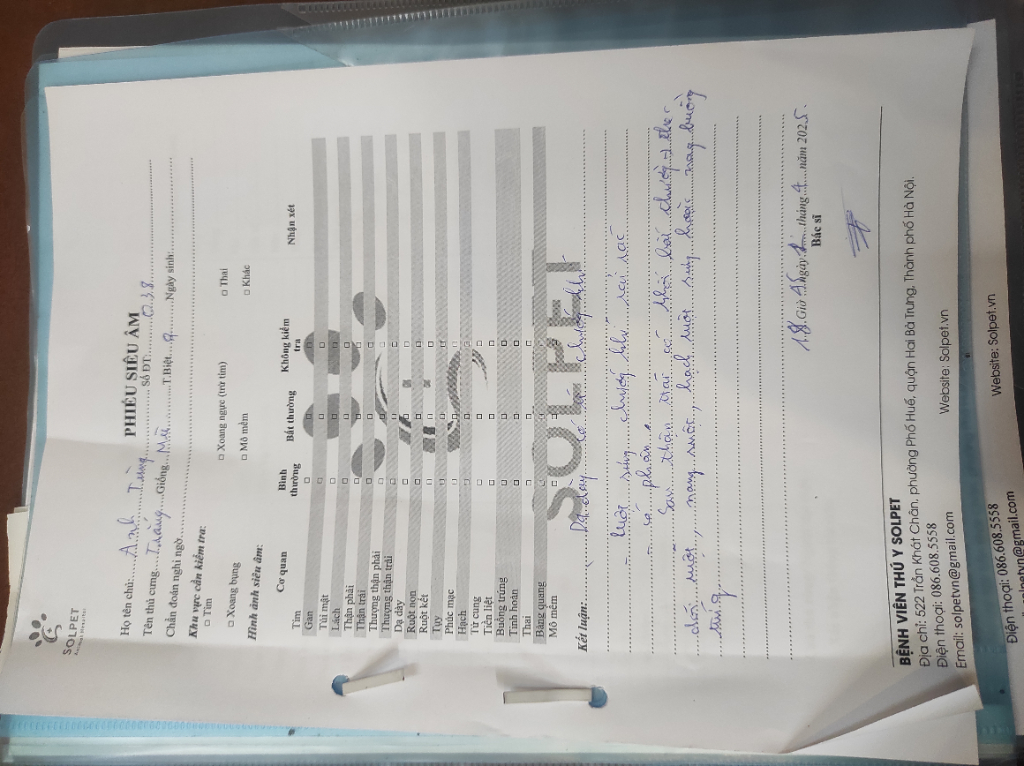 SOLPET
PHIẾU SIÊU ÂM
Họ tên chủ: Anh Tùng Số ĐT: 038
Tên thú cưng: Trắng Giống: Mứ T.Biệt: Ngày sinh:
Chẩn đoán nghi ngờ
Khu vực cần kiểm tra:
□ Tim □ Xoang ngực (trừ tim) □ Thai
□ Xoang bụng □ Mô mềm □ Khác
Hình ảnh siêu âm:
Cơ quan Bình thường Bất thường Không kiểm tra Nhận xét
Tim □ □ □
Gan □ □ □
Túi mật □ □ □
Lách □ □ □
Thận phải □ □ □
Thận trái □ □ □
Thượng thận phải □ □ □
Thượng thận trái □ □ □
Dạ dày □ □ □
Ruột non □ □ □
Ruột kết □ □ □
Tụy □ □ □
Phúc mạc □ □ □
Hạch □ □ □
Tử cung □ □ □
Tiền liệt □ □ □
Buồng trứng □ □ □
Tinh hoàn □ □ □
Thai □ □ □
Bàng quang □ □ □
Mô mềm □ □ □
SOLPET
Kết luận: Dạ dày có chướng khí
Ruột chướng khí rải rác
có phân
Sau thận trái có khối
dõi ruột, nang ruột, hạch ruột sưng hoặc nang buồng
trứng
18 Giờ 45 ngày tháng 4 năm 2025
Bác sĩ
BỆNH VIỆN THÚ Y SOLPET
Địa chỉ: 522 Trần Khát Chân, phường Phố Huế, quận Hai Bà Trưng, Thành phố Hà Nội.
Điện thoại: 086.608.5558 Website: Solpet.vn
Email: solpetvn@gmail.com
Điện thoại: 086.608.5558 Website: Solpet.vn